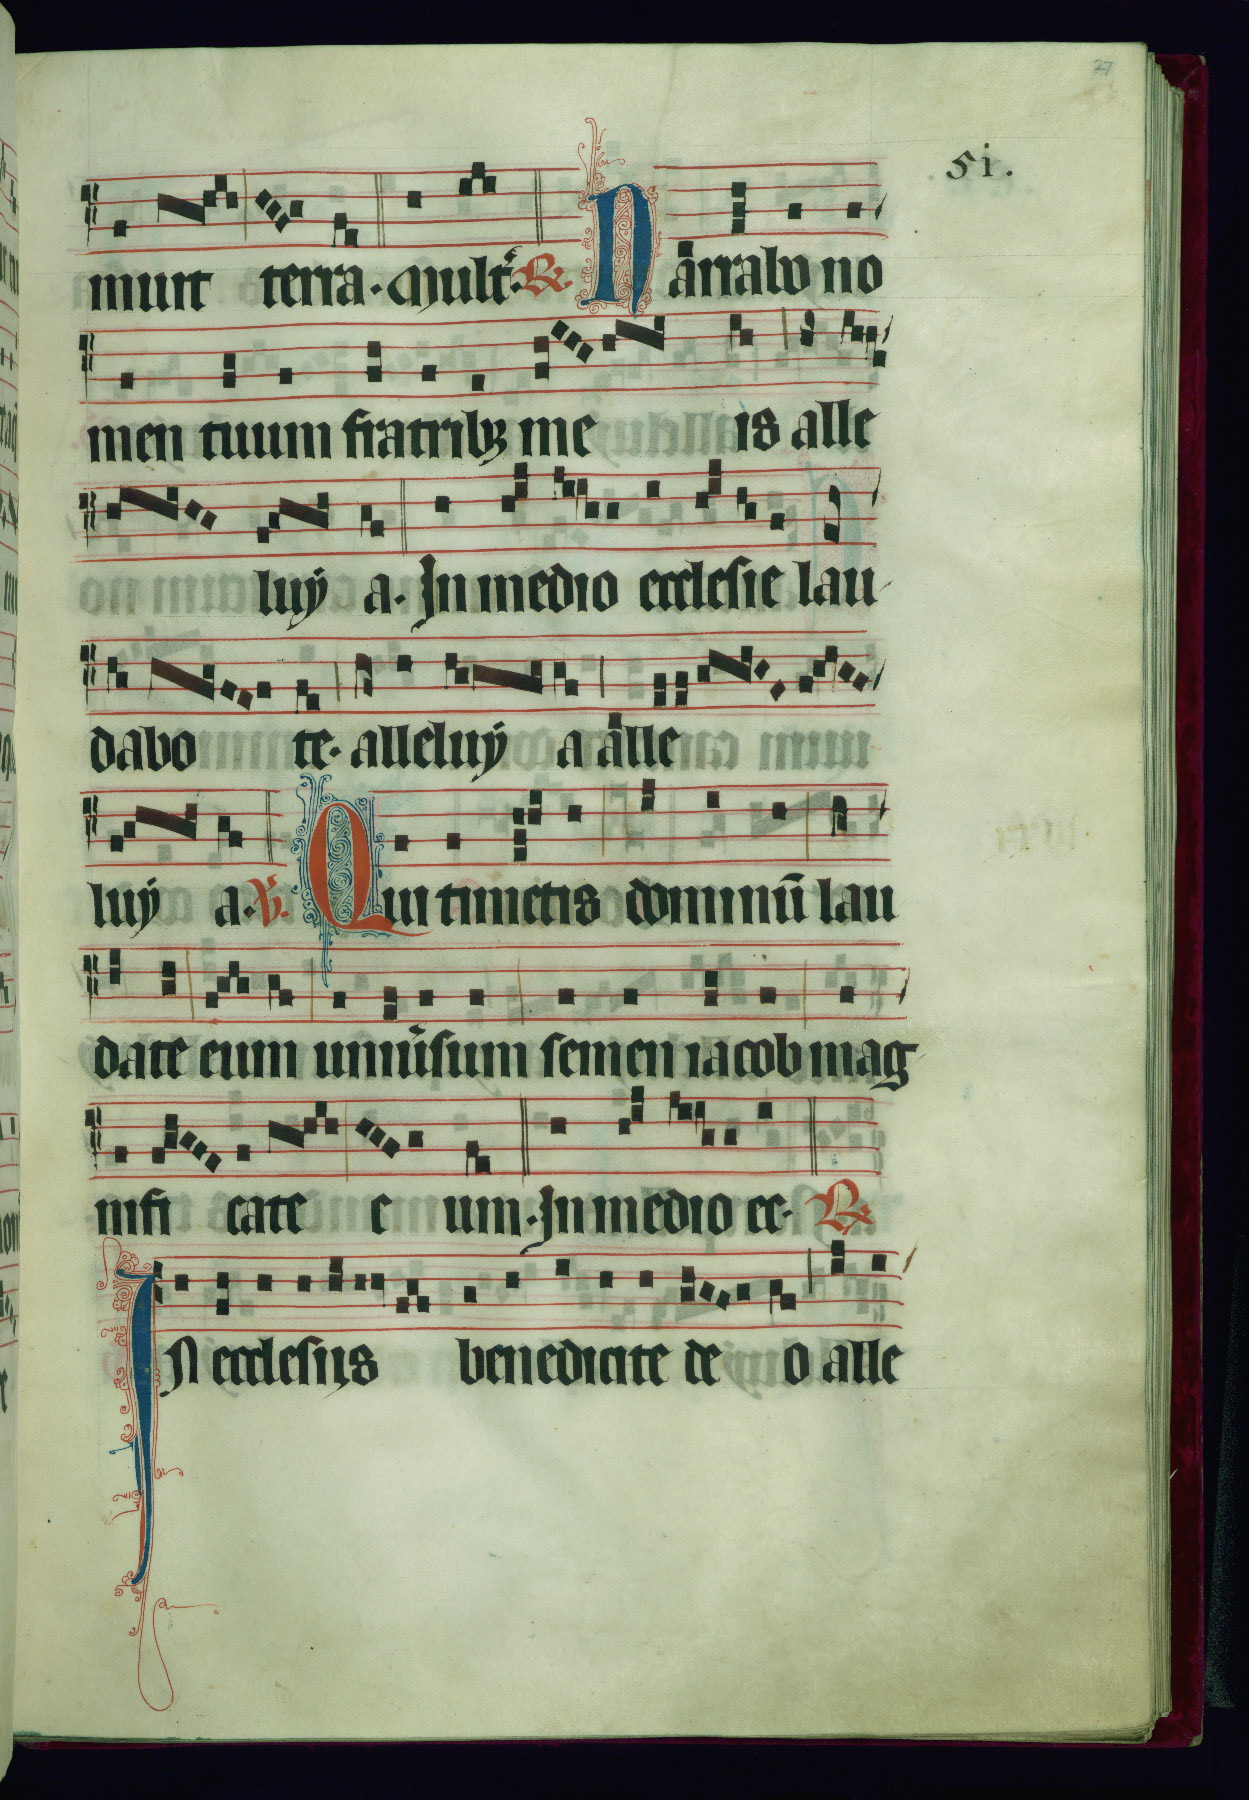 27
51.
munt terra. Mult᷑. ℟. Narrabo no
men tuum fratribꝫ me is alle
luÿ a. In medio ecclesie lau
dabo te. alleluÿ a alle
luÿ a. ℣. Qui timetis dominū lau
date eum uniũsum semen iacob mag
nifi cate e um. In medio ec. ℟.
IN ecclesijs benedicite de o alle